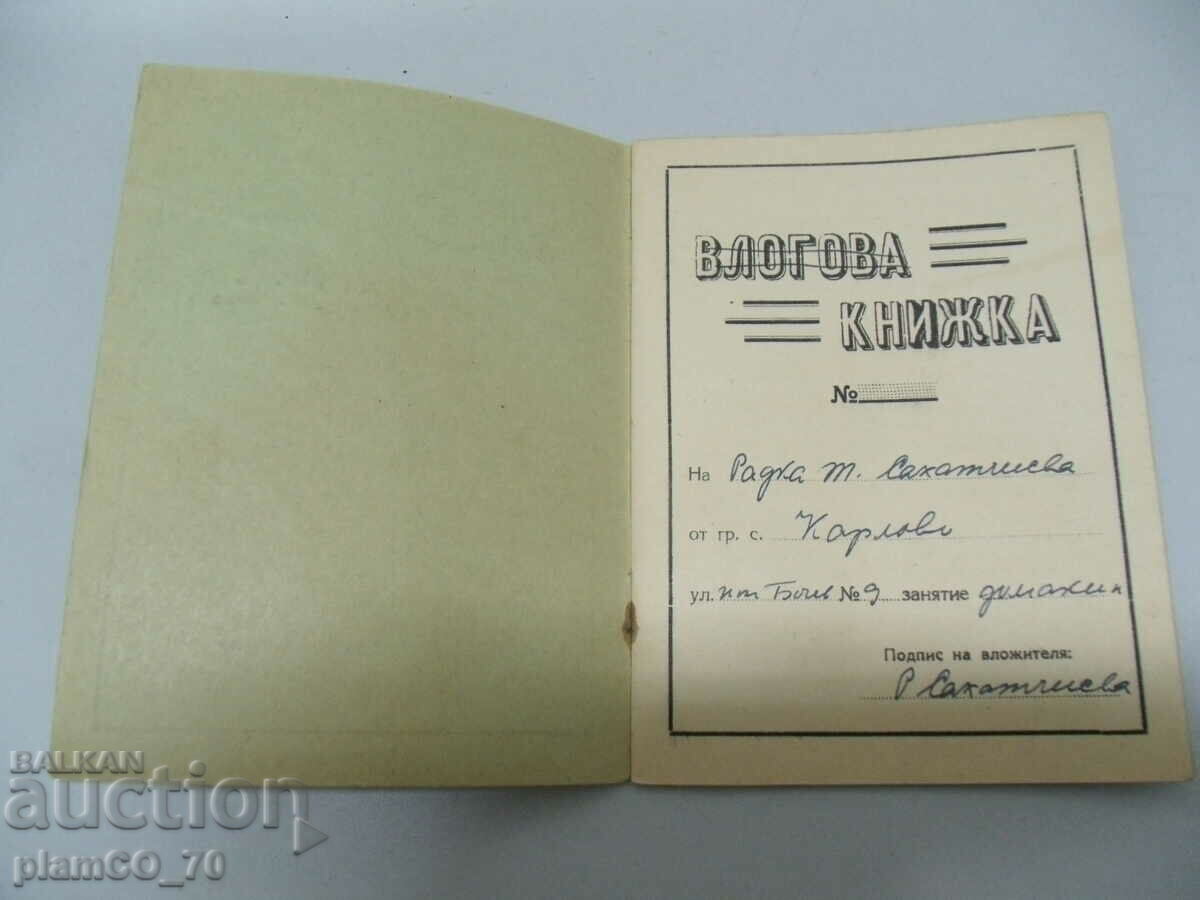 ВЛОГОВА
КНИЖКА
№
На Радка Т. Сахатчиева
от гр. с. Карлово
ул. Ит Боев № 9 занятие домакин
Подпис на вложителя:
Р Сахатчиева
BALKAN
auction
plamCO_70